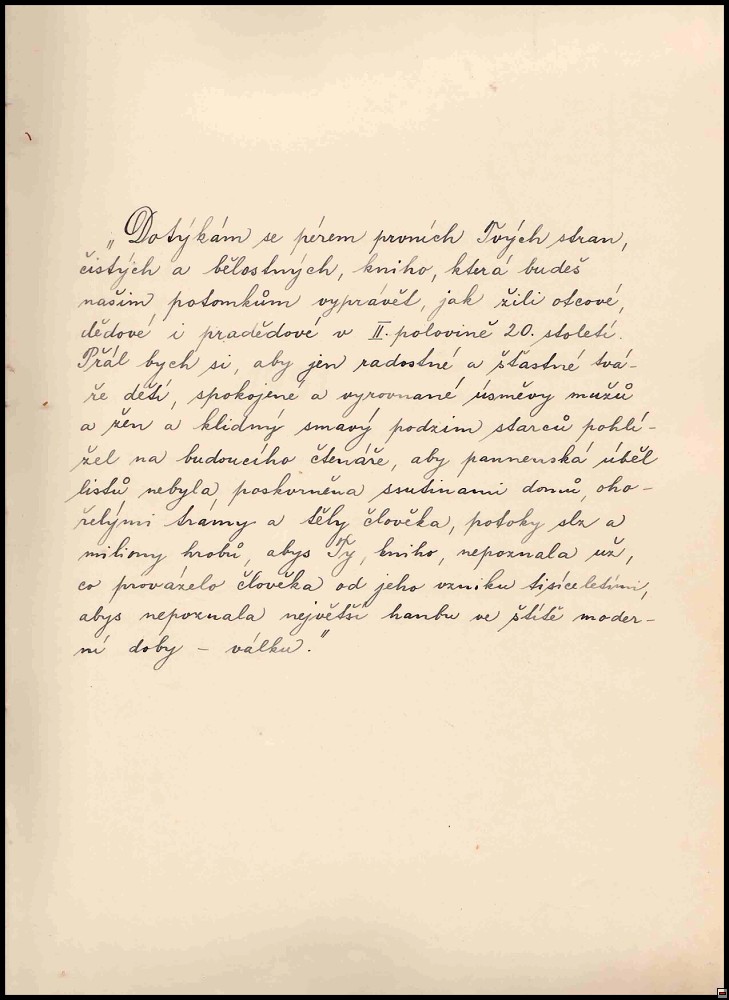 „Dotýkám se pérem prvních Tvých stran,
čistých a bělostných, kniho, která budeš
našim potomkům vyprávět, jak žili otcové,
dědové i pradědové v II. polovině 20. století.
Přál bych si, aby jen radostné a šťastné tvá-
ře dětí, spokojené a vyrovnané úsměvy mužů
a žen a klidný smavý podzim starců pohlí-
žel na budoucího čtenáře, aby pannenská úběl
listů nebyla poskvrněna ssutinami domů, oho-
řelými trámy a těly člověka, potoky slz a
miliony hrobů, abys Ty, kniho, nepoznala už,
co provázelo člověka od jeho vzniku tisíceletími,
abys nepoznala největší hanbu ve štítě moder-
ní doby – válku."